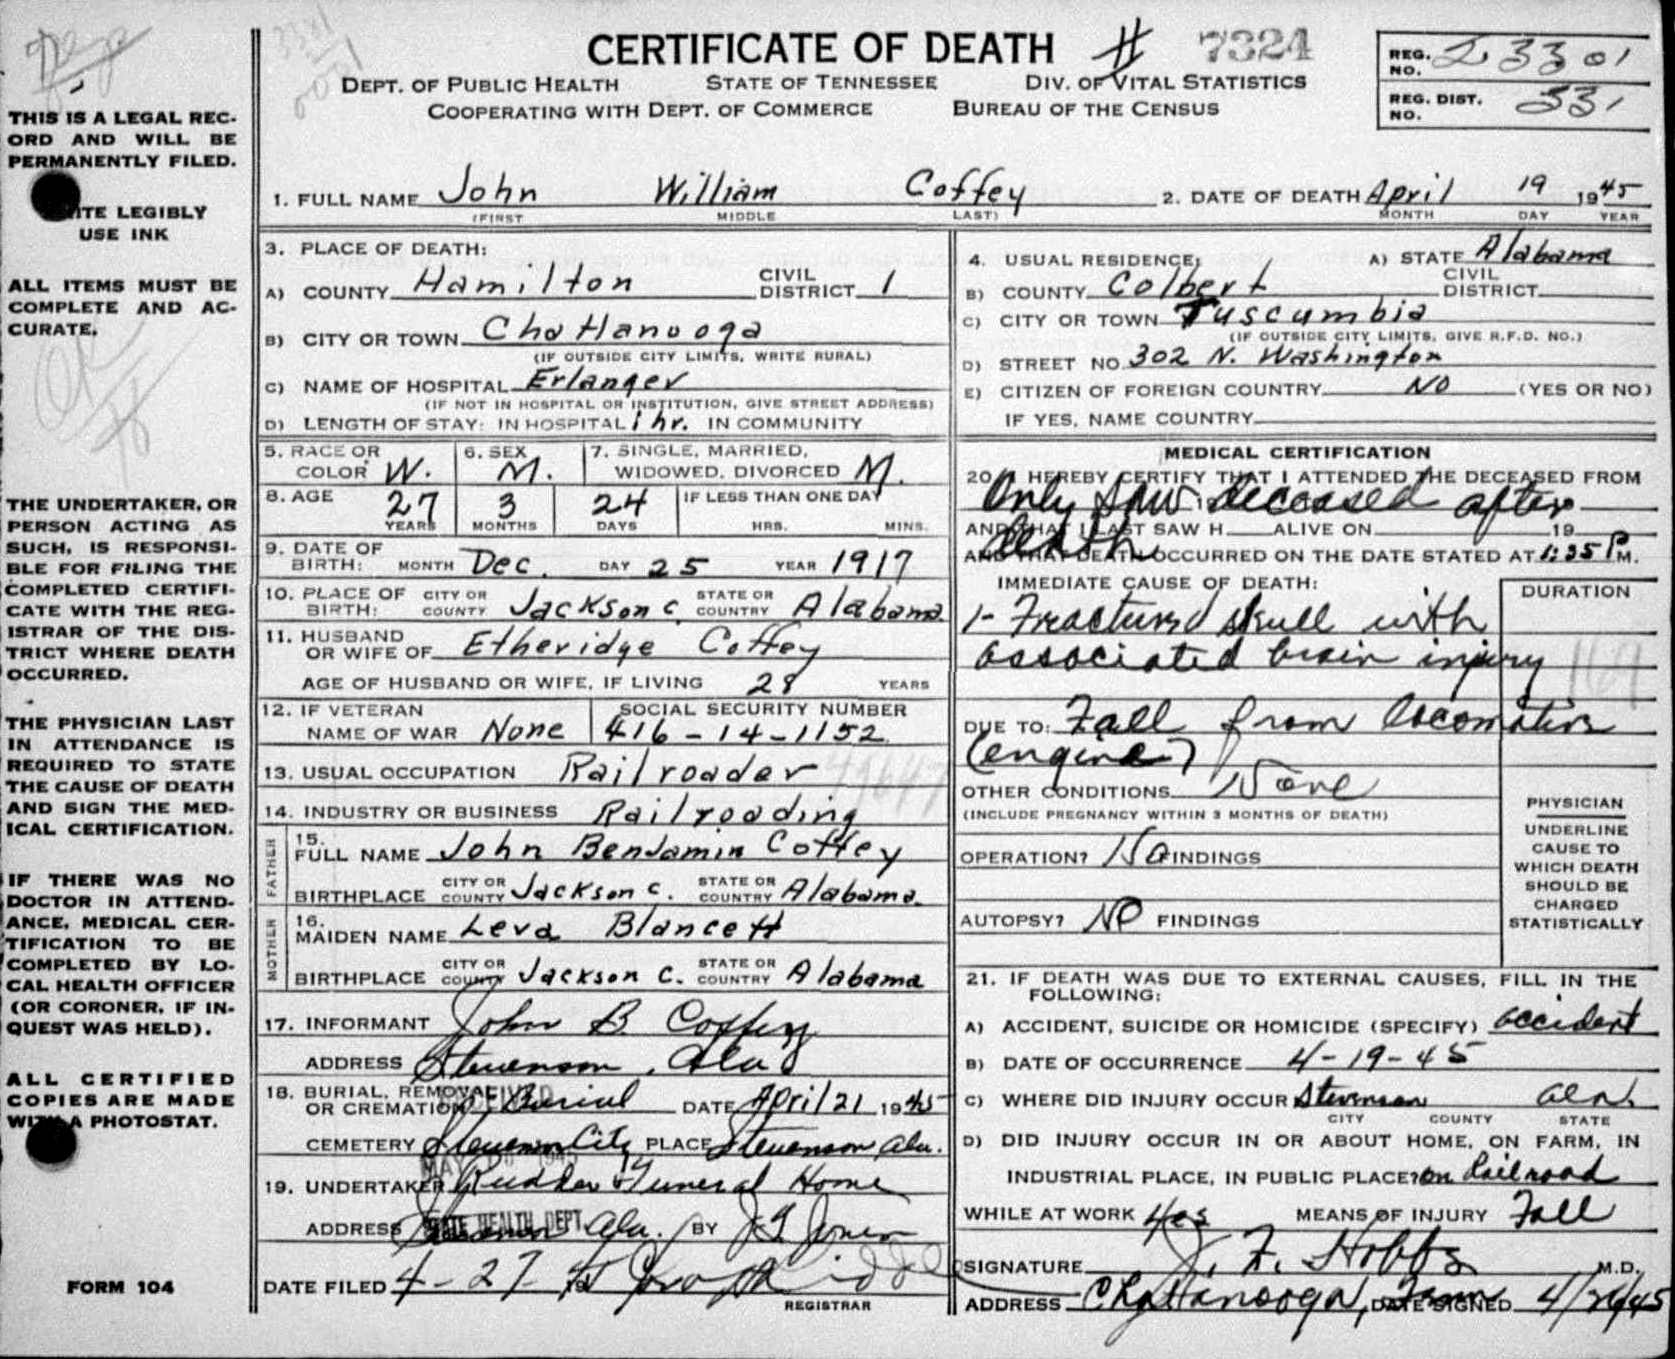 CERTIFICATE OF DEATH # 7324
DEPT. OF PUBLIC HEALTH STATE OF TENNESSEE DIV. OF VITAL STATISTICS
COOPERATING WITH DEPT. OF COMMERCE BUREAU OF THE CENSUS
REG. NO. 23301
REG. DIST. NO. 331
THIS IS A LEGAL REC-
ORD AND WILL BE
PERMANENTLY FILED.
ITE LEGIBLY
USE INK
ALL ITEMS MUST BE
COMPLETE AND AC-
CURATE.
THE UNDERTAKER, OR
PERSON ACTING AS
SUCH, IS RESPONSI-
BLE FOR FILING THE
COMPLETED CERTIFI-
CATE WITH THE REG-
ISTRAR OF THE DIS-
TRICT WHERE DEATH
OCCURRED.
THE PHYSICIAN LAST
IN ATTENDANCE IS
REQUIRED TO STATE
THE CAUSE OF DEATH
AND SIGN THE MED-
ICAL CERTIFICATION.
IF THERE WAS NO
DOCTOR IN ATTEND-
ANCE, MEDICAL CER-
TIFICATION TO BE
COMPLETED BY LO-
CAL HEALTH OFFICER
(OR CORONER, IF IN-
QUEST WAS HELD).
ALL CERTIFIED
COPIES ARE MADE
WITH A PHOTOSTAT.
FORM 104
1. FULL NAME John William Coffey 2. DATE OF DEATH April 19 1945
(FIRST MIDDLE LAST) MONTH DAY YEAR
3. PLACE OF DEATH:
A) COUNTY Hamilton CIVIL DISTRICT 1
B) CITY OR TOWN Chattanooga
(IF OUTSIDE CITY LIMITS, WRITE RURAL)
C) NAME OF HOSPITAL Erlanger
(IF NOT IN HOSPITAL OR INSTITUTION, GIVE STREET ADDRESS)
D) LENGTH OF STAY: IN HOSPITAL 1 hr. IN COMMUNITY
4. USUAL RESIDENCE: A) STATE Alabama
B) COUNTY Colbert CIVIL DISTRICT
C) CITY OR TOWN Tuscumbia
(IF OUTSIDE CITY LIMITS, GIVE R.F.D. NO.)
D) STREET NO. 302 N. Washington
E) CITIZEN OF FOREIGN COUNTRY NO (YES OR NO)
IF YES, NAME COUNTRY
5. RACE OR COLOR W. 6. SEX M. 7. SINGLE, MARRIED, WIDOWED, DIVORCED M.
8. AGE 27 YEARS 3 MONTHS 24 DAYS IF LESS THAN ONE DAY HRS. MINS.
9. DATE OF BIRTH: MONTH Dec. DAY 25 YEAR 1917
10. PLACE OF BIRTH: CITY OR COUNTY Jackson C. STATE OR COUNTRY Alabama
11. HUSBAND OR WIFE OF Etheridge Coffey
AGE OF HUSBAND OR WIFE, IF LIVING 28 YEARS
12. IF VETERAN NAME OF WAR None SOCIAL SECURITY NUMBER 416-14-1152
13. USUAL OCCUPATION Railroader
14. INDUSTRY OR BUSINESS Railroading
FATHER
15. FULL NAME John Benjamin Coffey
BIRTHPLACE CITY OR COUNTY Jackson C. STATE OR COUNTRY Alabama.
MOTHER
16. MAIDEN NAME Leva Blancett
BIRTHPLACE CITY OR COUNTY Jackson C. STATE OR COUNTRY Alabama
17. INFORMANT John B. Coffey
ADDRESS Stevenson, Ala
18. BURIAL, REMOVAL OR CREMATION Burial DATE April 21 1945
CEMETERY Stevenson City PLACE Stevenson Ala.
19. UNDERTAKER Rudder Funeral Home
ADDRESS Stevenson Ala. BY J Jones
STATE HEALTH DEPT.
DATE FILED 4-27-45
REGISTRAR
MEDICAL CERTIFICATION
20. I HEREBY CERTIFY THAT I ATTENDED THE DECEASED FROM
Only saw deceased after
AND THAT I LAST SAW H ALIVE ON 19
death
AND THAT DEATH OCCURRED ON THE DATE STATED AT 1:35 P M.
IMMEDIATE CAUSE OF DEATH: DURATION
1- Fractured skull with
associated brain injury
DUE TO: Fall from locomotive
(engine)
OTHER CONDITIONS None
(INCLUDE PREGNANCY WITHIN 3 MONTHS OF DEATH)
OPERATION? No FINDINGS
AUTOPSY? NO FINDINGS
PHYSICIAN
UNDERLINE
CAUSE TO
WHICH DEATH
SHOULD BE
CHARGED
STATISTICALLY
21. IF DEATH WAS DUE TO EXTERNAL CAUSES, FILL IN THE
FOLLOWING:
A) ACCIDENT, SUICIDE OR HOMICIDE (SPECIFY) accident
B) DATE OF OCCURRENCE 4-19-45
C) WHERE DID INJURY OCCUR Stevenson Ala.
CITY COUNTY STATE
D) DID INJURY OCCUR IN OR ABOUT HOME, ON FARM, IN
INDUSTRIAL PLACE, IN PUBLIC PLACE? on Railroad
WHILE AT WORK Yes MEANS OF INJURY Fall
SIGNATURE J. F. Hobbs M.D.
ADDRESS Chattanooga, Tenn DATE SIGNED 4/26/45